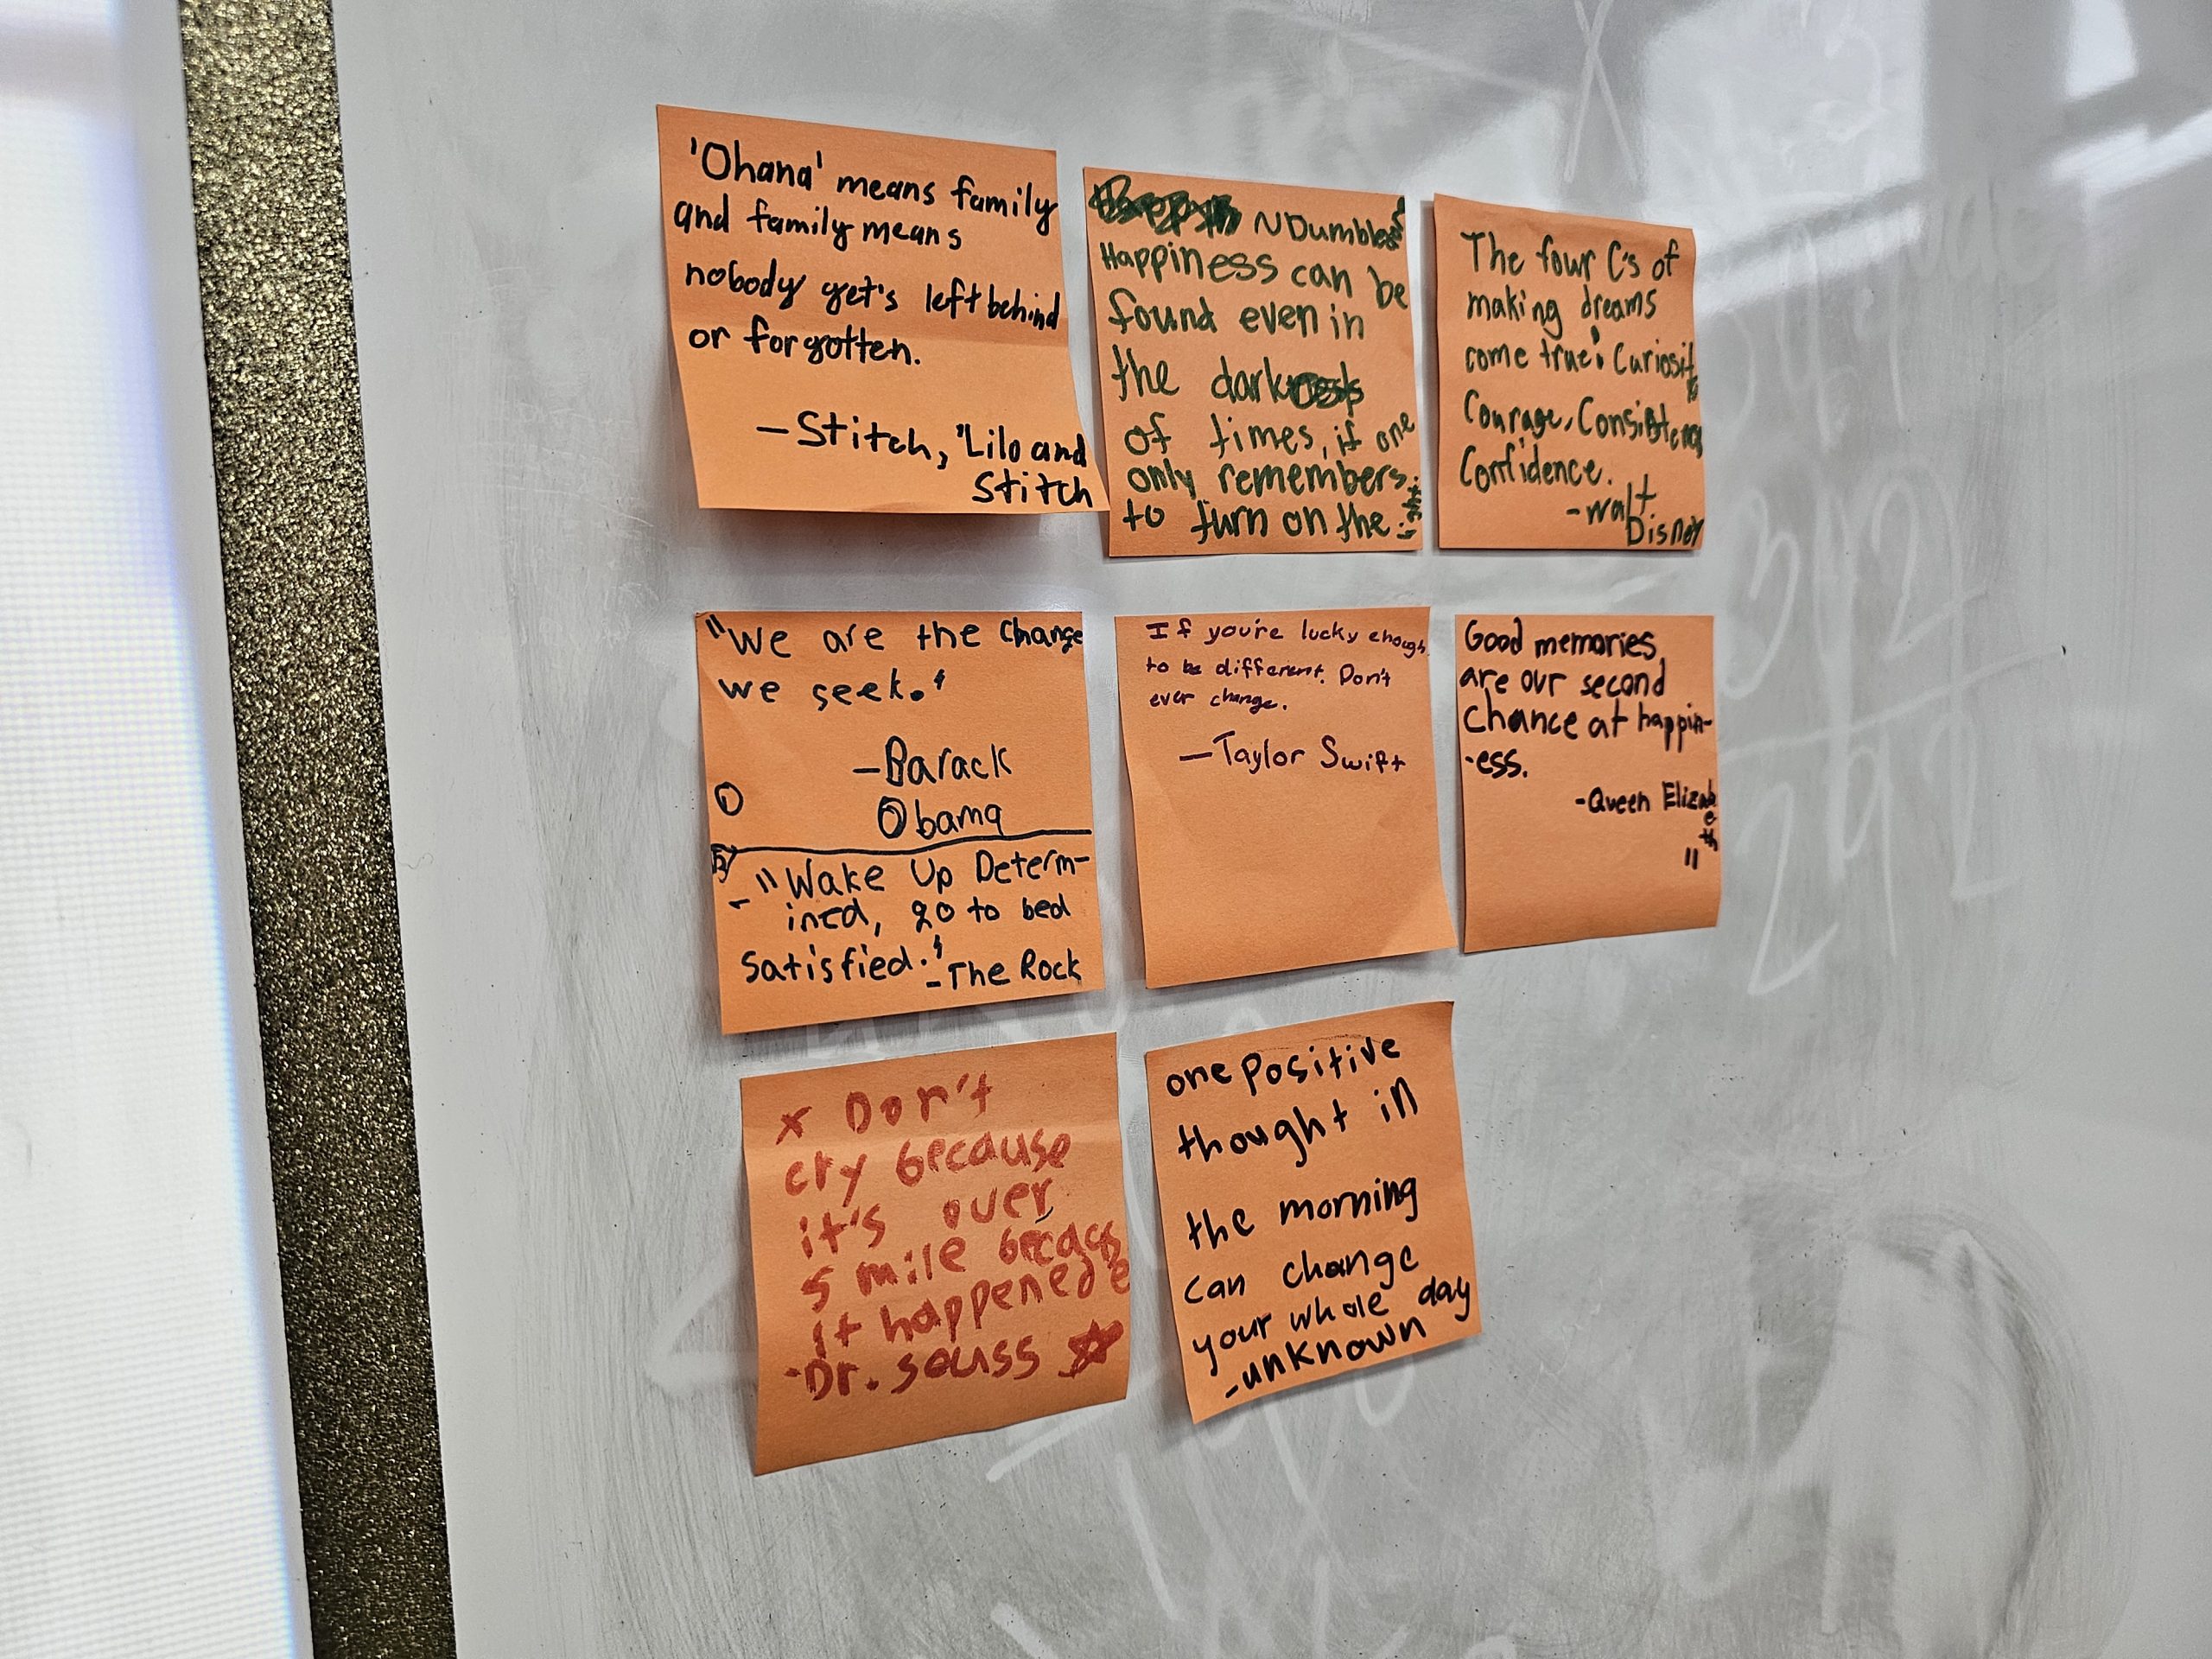 'Ohana' means family
and family means
nobody get's left behind
or forgotten.
—Stitch, 'Lilo and
Stitch
~Dumbledore
Happiness can be
found even in
the darkness
of times, if one
only remembers
to turn on the light
The four C's of
making dreams
come true: Curiosity
Courage, Consistency
Confidence.
-Walt
Disney
"We are the Change
we seek."
—Barack
Obama
①
②
- "Wake Up Determ-
ined, go to bed
satisfied."
-The Rock
If you're lucky enough
to be different. Don't
ever change.
—Taylor Swift
Good memories
are our second
chance at happin-
-ess.
-Queen Elizabeth
II
x Don't
cry because
it's over
smile because
it happened
-Dr. seuss
one positive
thought in
the morning
can change
your whole day
-unknown